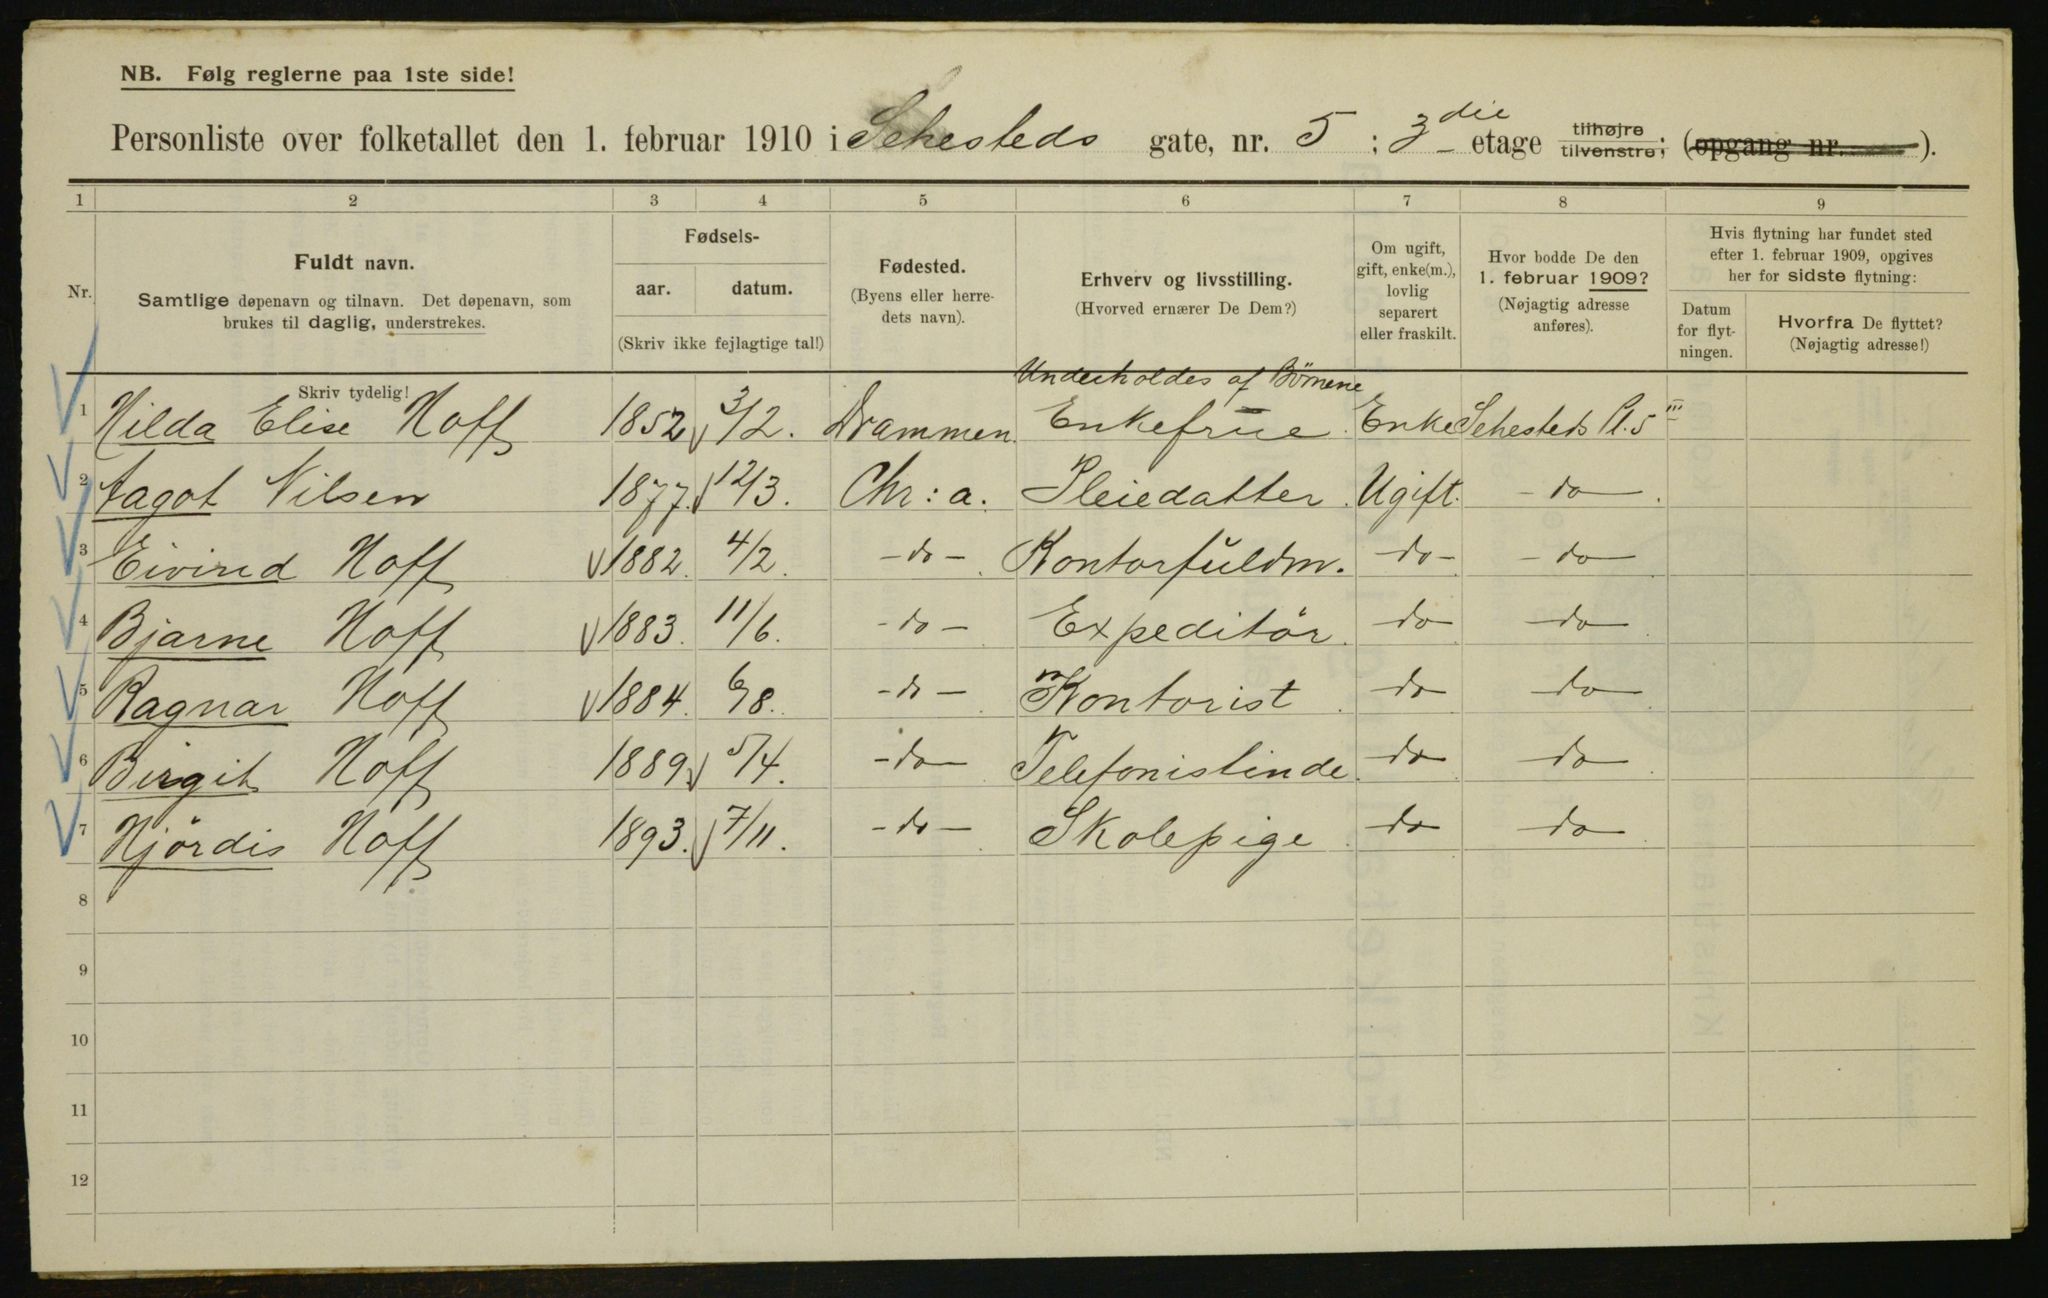 NB. Følg reglerne paa 1ste side!
Personliste over folketallet den 1. februar 1910 i Sehesteds gate, nr. 5 ; 3die etage tilhøjre tilvenstre; (opgang nr. ).
1 2 3 4 5 6 7 8 9
Nr.
Fuldt navn.
Samtlige døpenavn og tilnavn. Det døpenavn, som
brukes til daglig, understrekes.
Skriv tydelig!
Fødsels-
aar. datum.
(Skriv ikke fejlagtige tal!)
Fødested.
(Byens eller herre-
dets navn).
Erhverv og livsstilling.
(Hvorved ernærer De Dem?)
Om ugift,
gift, enke(m.),
lovlig
separert
eller fraskilt.
Hvor bodde De den
1. februar 1909?
(Nøjagtig adresse
anføres).
Hvis flytning har fundet sted
efter 1. februar 1909, opgives
her for sidste flytning:
Datum
for flyt-
ningen.
Hvorfra De flyttet?
(Nøjagtig adresse!)
Underholdes af Börnene
1 Hilda Elise Hoff 1852 3/2. Drammen. Enkefrue. Enke Sehesteds Pl. 5 III
2 Aagot Nilsen 1877. 12/3. Chr: a. Pleiedatter. Ugift. - do -.
3 Eivind Hoff 1882. 4/2. - do -. Kontorfuldm. - do - - do -
4 Bjarne Hoff 1883. 11/6. - do - Expeditör. do do
5 Ragnar Hoff 1884. 6/8. - do - Kontorist do do
6 Birgit Hoff 1889. 5/4. - do - Telefonistinde. do do
7 Hjördis Hoff 1893. 7/11. - do - Skolepige do do
8
9
10
11
12